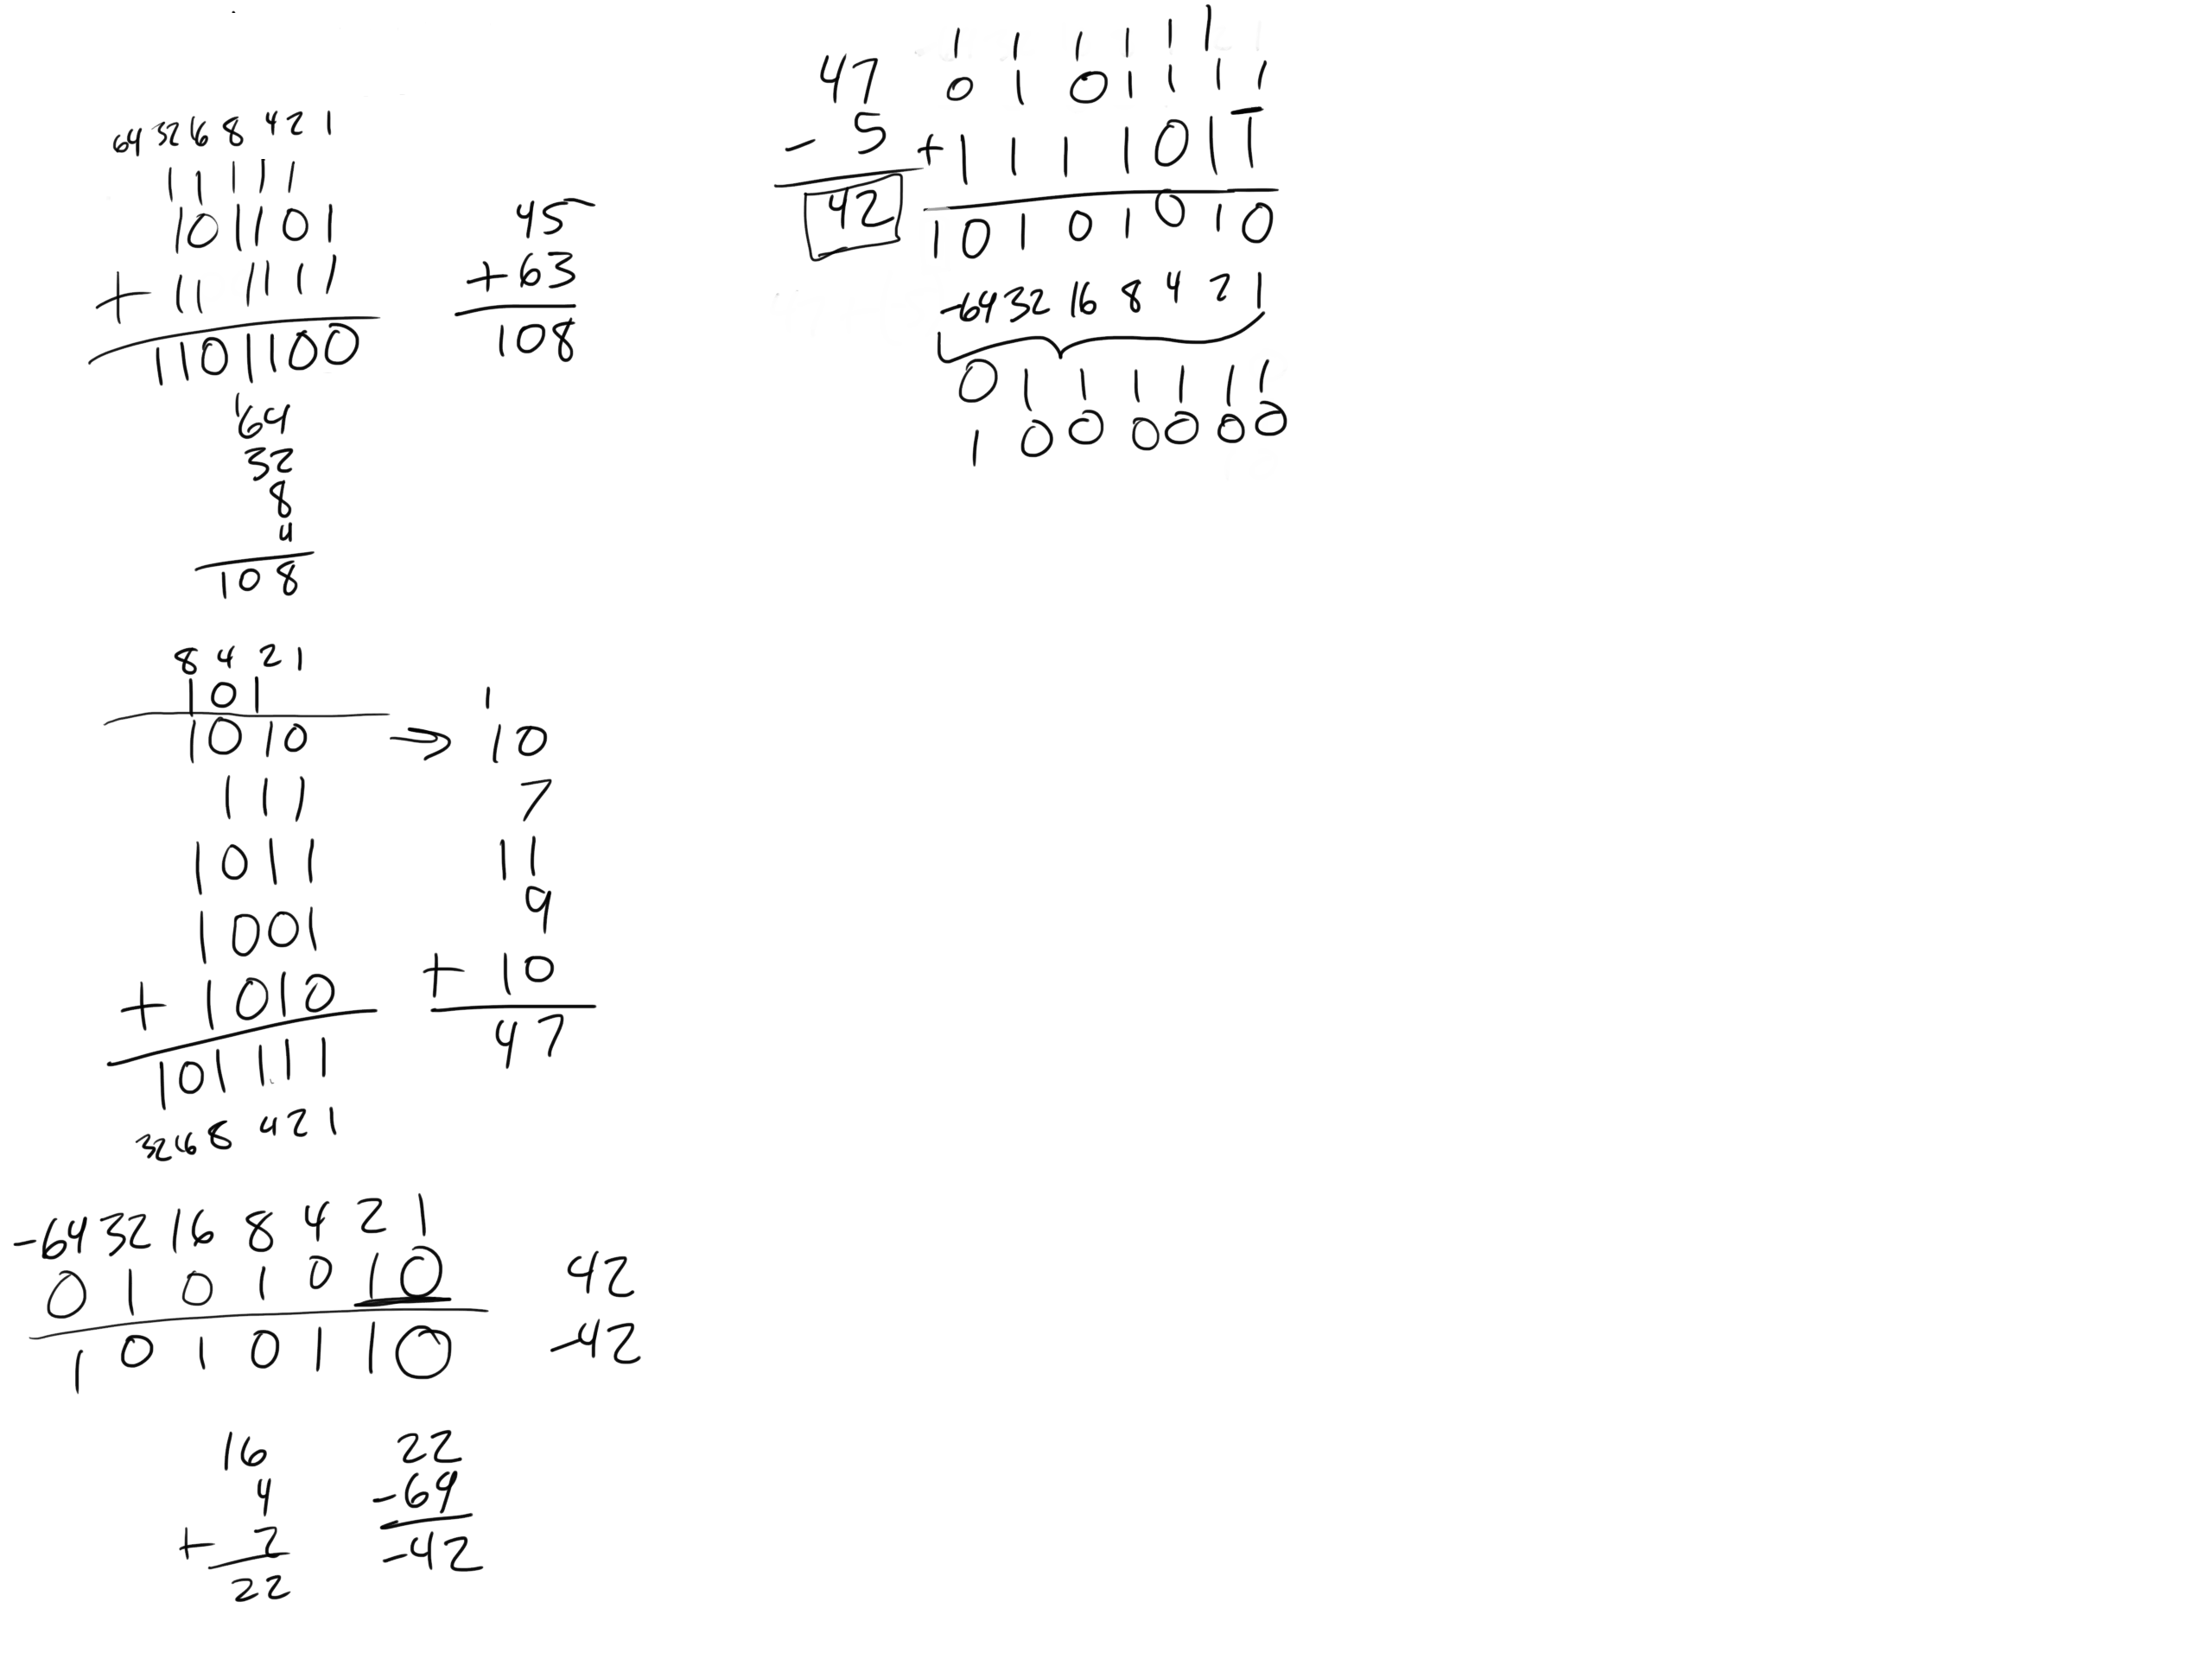 64 32 16 8 4 2 1
1 1 1 1 1
101101
+ 111111
1101100
45
+ 63
108
64
32
8
4
108
8 4 2 1
101
1010 ⇒
111
1011
1001
+ 1010
101111
32 16 8 4 2 1
1
10
7
11
9
+ 10
47
-64 32 16 8 4 2 1
0 1 0 1 0 1 0
1 0 1 0 1 1 0
42
-42
16
4
+ 2
22
22
-64
-42
47
- 5
42
1 1 1 1 1 1
0 1 0 1 1 1 1
+ 1 1 1 1 0 1 1
1 0 1 0 1 0 1 0
-64 32 16 8 4 2 1
0 1 1 1 1 1 1
1 0 0 0 0 0 0